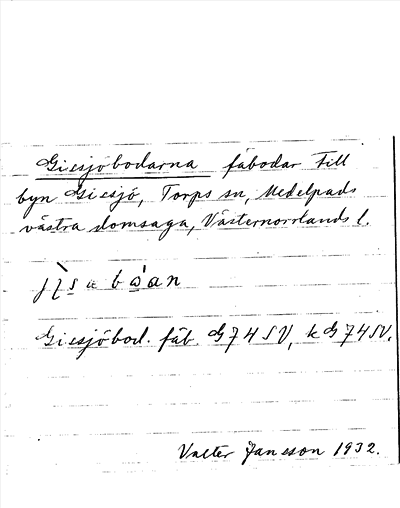 Giesjöbodarna fäbodar till
byn Giesjö, Torps sn, Medelpads
västra domsaga, Västernorrlands l.
Giesjöbod. fäb. G74SV, k G74SV.
Valter Jansson 1932.